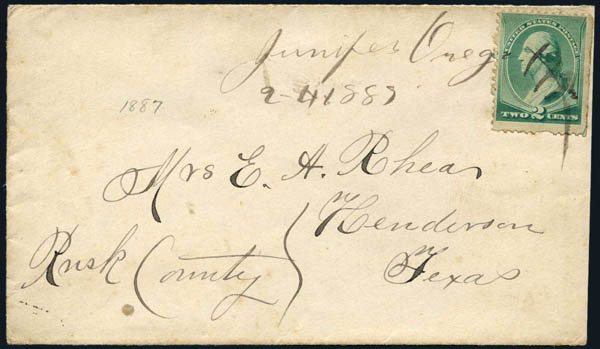 Juniper Oreg
2-4 1887
UNITED STATES POSTAGE
TWO 2 CENTS
1887
Mrs E. A. Rhea
Henderson
Rusk County
Texas